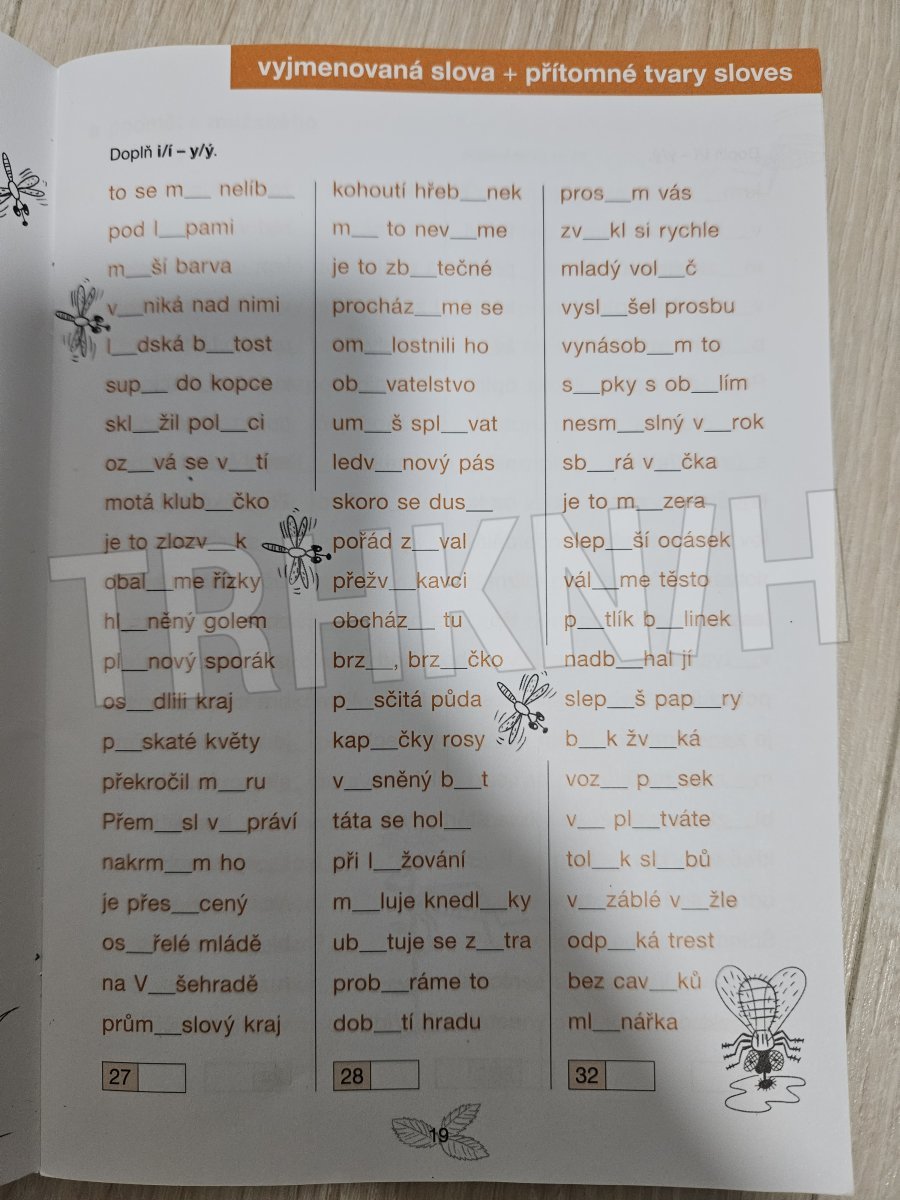 vyjmenovaná slova + přítomné tvary sloves
Doplň i/í – y/ý.
to se m__ nelíb__
pod l__pami
m__ší barva
v__niká nad nimi
l__dská b__tost
sup__ do kopce
skl__žil pol__ci
oz__vá se v__tí
motá klub__čko
je to zlozv__k
obal__me řízky
hl__něný golem
pl__nový sporák
os__dlili kraj
p__skaté květy
překročil m__ru
Přem__sl v__práví
nakrm__m ho
je přes__cený
os__řelé mládě
na V__šehradě
prům__slový kraj
27
kohoutí hřeb__nek
m__ to nev__me
je to zb__tečné
procház__me se
om__lostnili ho
ob__vatelstvo
um__š spl__vat
ledv__nový pás
skoro se dus__
pořád z__val
přežv__kavci
obcház__ tu
brz__, brz__čko
p__sčitá půda
kap__čky rosy
v__sněný b__t
táta se hol__
při l__žování
m__luje knedl__ky
ub__tuje se z__tra
prob__ráme to
dob__tí hradu
28
pros__m vás
zv__kl si rychle
mladý vol__č
vysl__šel prosbu
vynásob__m to
s__pky s ob__lím
nesm__slný v__rok
sb__rá v__čka
je to m__zera
slep__ší ocásek
vál__me těsto
p__tlík b__linek
nadb__hal jí
slep__š pap__ry
b__k žv__ká
voz__ p__sek
v__ pl__tváte
tol__k sl__bů
v__záblé v__žle
odp__ká trest
bez cav__ků
ml__nářka
32
19
TRHKNIH